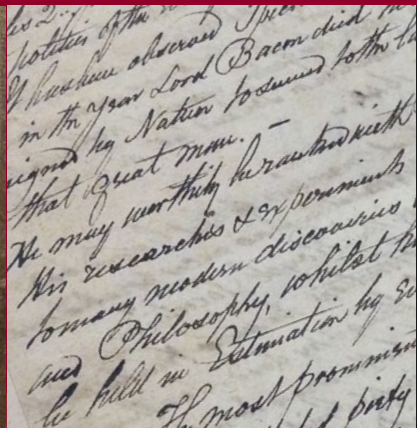 his 2
politics of the
I have observed
in the year Lord Bacon died
signed by Nature to succeed to the
that great man. —
He may worthily be ranked with
His researches & experiments
to many modern discoveries
and Philosophy, whilst
be held in Estimation by
most prominent
piety